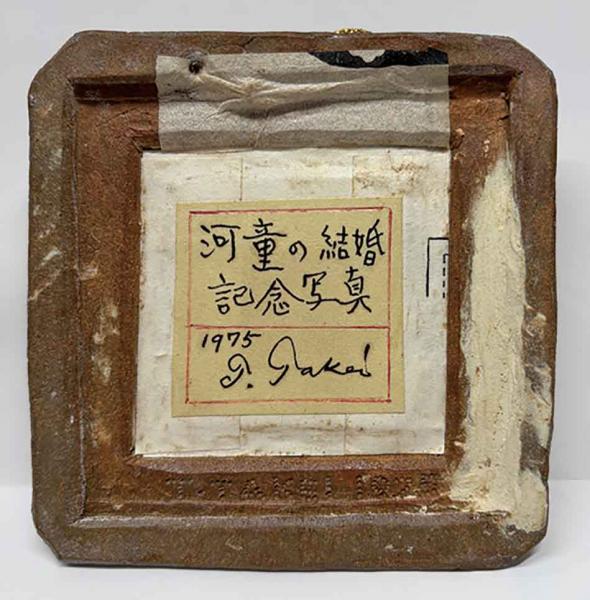 河童の結婚
記念写真
1975
G. Takei